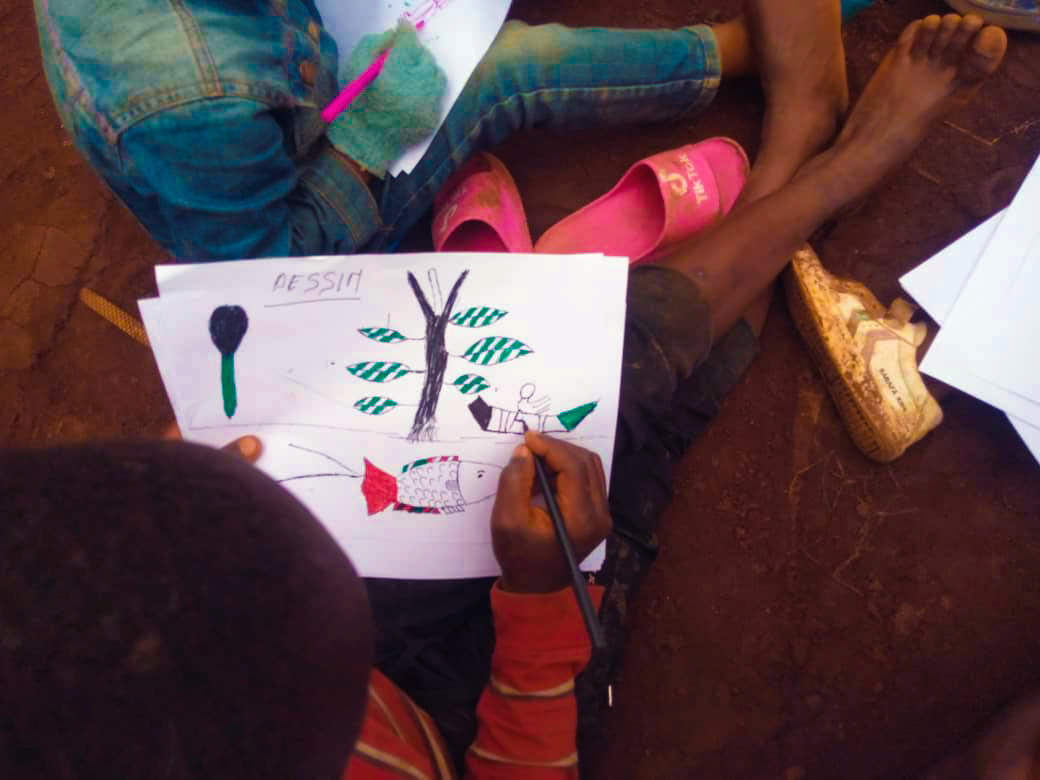 DESSIN
TikTok